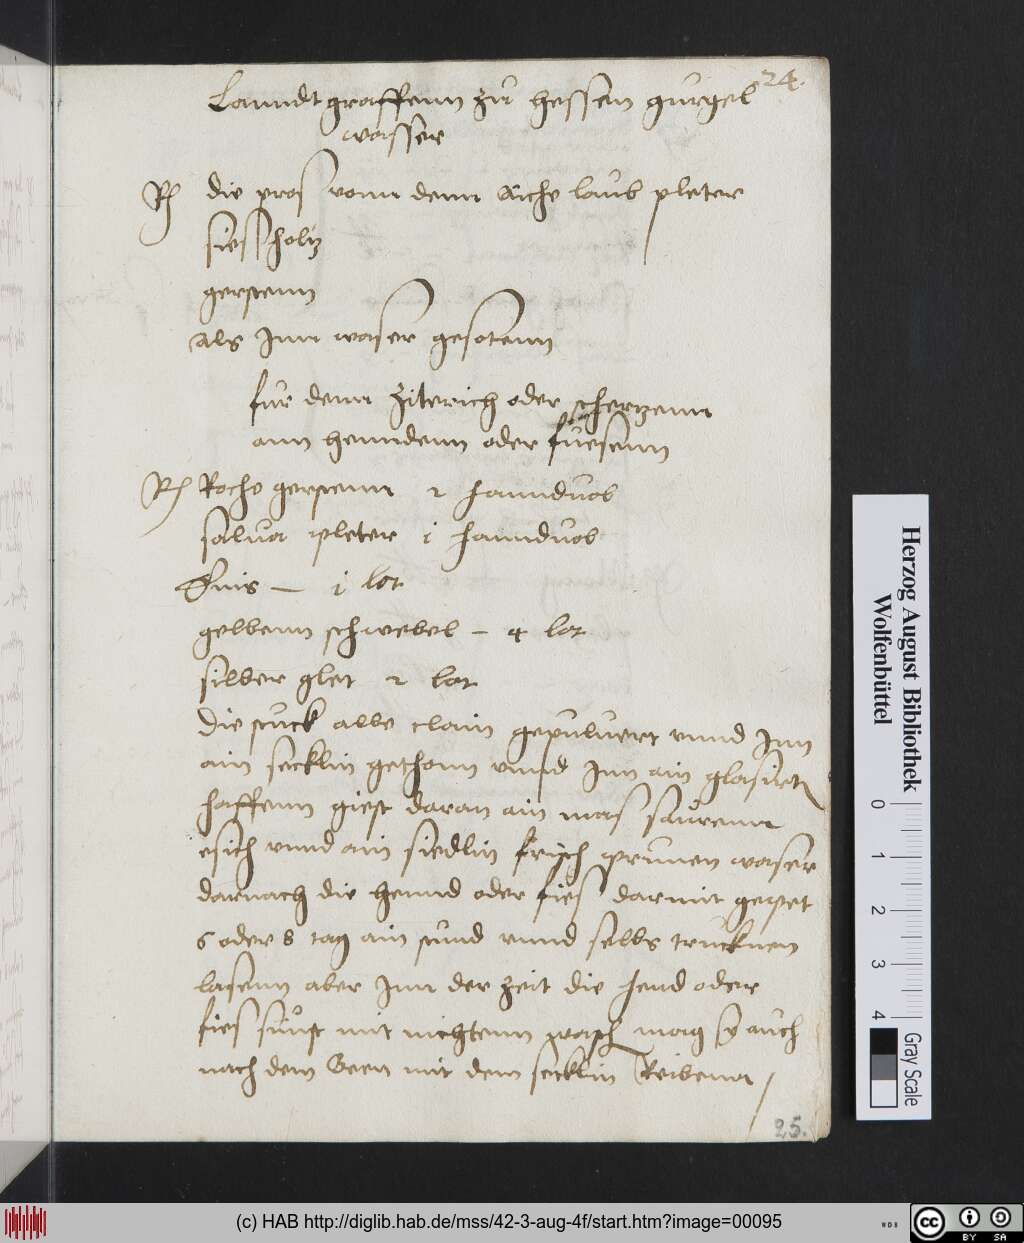 24.
Lanndtgraffenn zu hessen gurgel
wasser
Rp die pros vonn denn aiche laub pleter
siessholtz
gerstenn
als Inn waser gesotenn
fur denn ziterich oder scherzenn
ann henndenn oder fuesenn
Rp Roche gerstenn 2 hanndvol
salva pleter j hanndvol
Enis — j lot
gelbenn schwebel — 4 lot
silber glet 2 lot
die stuck alle clain gepulvert unnd Inn
ain secklin gethonn unnd Inn ain glasurt
haffenn giest daran ain mas saurenn
esich unnd ain siedlin frisch prunen waser
darnach die hennd oder fies darmit gepet
6 oder 8 tag ain stund unnd selbs trucknen
lasenn aber Inn der zeit die hend oder
fies sunst mit nichtenn wasch mag sy auch
nach dem Been mit dem secklin Reibenn /
25.
Herzog August Bibliothek
Wolfenbüttel
0 1 2 3 4
Gray Scale
(c) HAB http://diglib.hab.de/mss/42-3-aug-4f/start.htm?image=00095
WDB
cc BY SA